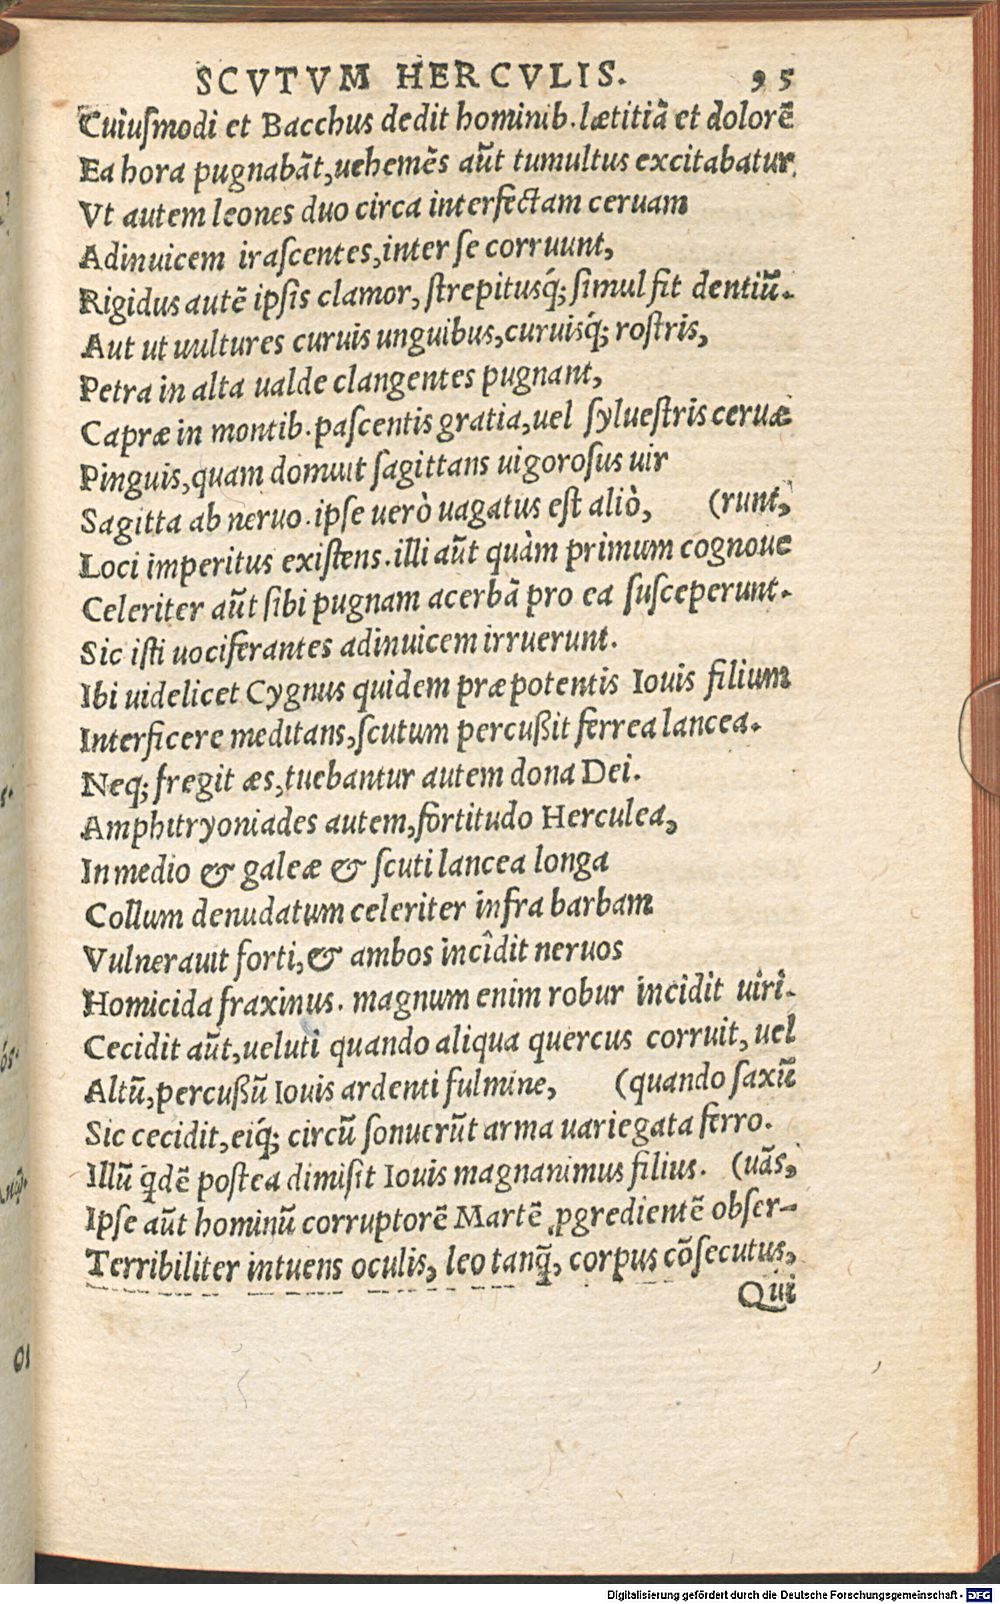 SCVTVM HERCVLIS. 95
Cuiusmodi et Bacchus dedit hominib. lætitiã et dolorẽ
Ea hora pugnabãt, uehemẽs aũt tumultus excitabatur.
Vt autem leones duo circa interfectam ceruam
Adinuicem irascentes, inter se corruunt,
Rigidus autẽ ipsis clamor, strepitusq́; simul fit dentiũ.
Aut ut uultures curuis unguibus, curuisq́; rostris,
Petra in alta ualde clangentes pugnant,
Capræ in montib. pascentis gratia, uel syluestris ceruæ
Pinguis, quam domuit sagittans uigorosus uir
Sagitta ab neruo. ipse uerò uagatus est aliò, (runt,
Loci imperitus existens. illi aũt quàm primum cognoue
Celeriter aũt sibi pugnam acerbã pro ea susceperunt.
Sic isti uociferantes adinuicem irruerunt.
Ibi uidelicet Cygnus quidem præpotentis Iouis filium
Interficere meditans, scutum percußit ferrea lancea.
Neq; fregit æs, tuebantur autem dona Dei.
Amphitryoniades autem, fortitudo Herculea,
In medio & galeæ & scuti lancea longa
Collum denudatum celeriter infra barbam
Vulnerauit forti, & ambos incîdit neruos
Homicida fraxinus. magnum enim robur incidit uiri.
Cecidit aũt, ueluti quando aliqua quercus corruit, uel
Altũ, percußũ Iouis ardenti fulmine, (quando saxũ
Sic cecidit, eiq́; circũ sonuerũt arma uariegata ferro.
Illũ q̃dẽ postea dimisit Iouis magnanimus filius. (uãs,
Ipse aũt hominũ corruptorẽ Martẽ ꝓgredientẽ obser-
Terribiliter intuens oculis, leo tanq̃, corpus cõsecutus,
Qui
Digitalisierung gefördert durch die Deutsche Forschungsgemeinschaft - DFG